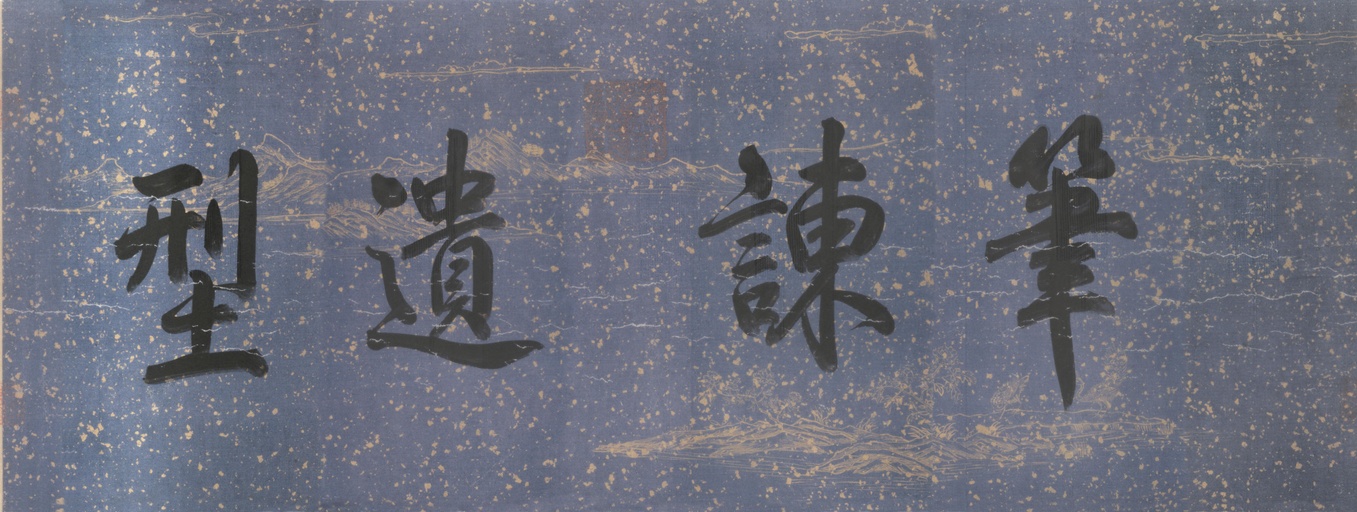 筆諫遺型